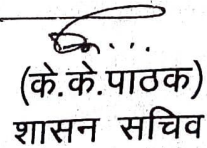 (के.के.पाठक)
शासन सचिव